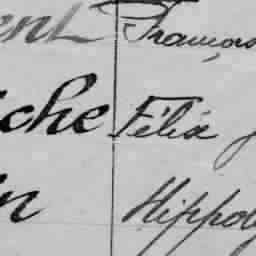 ent François
che Félix
in Hippoly